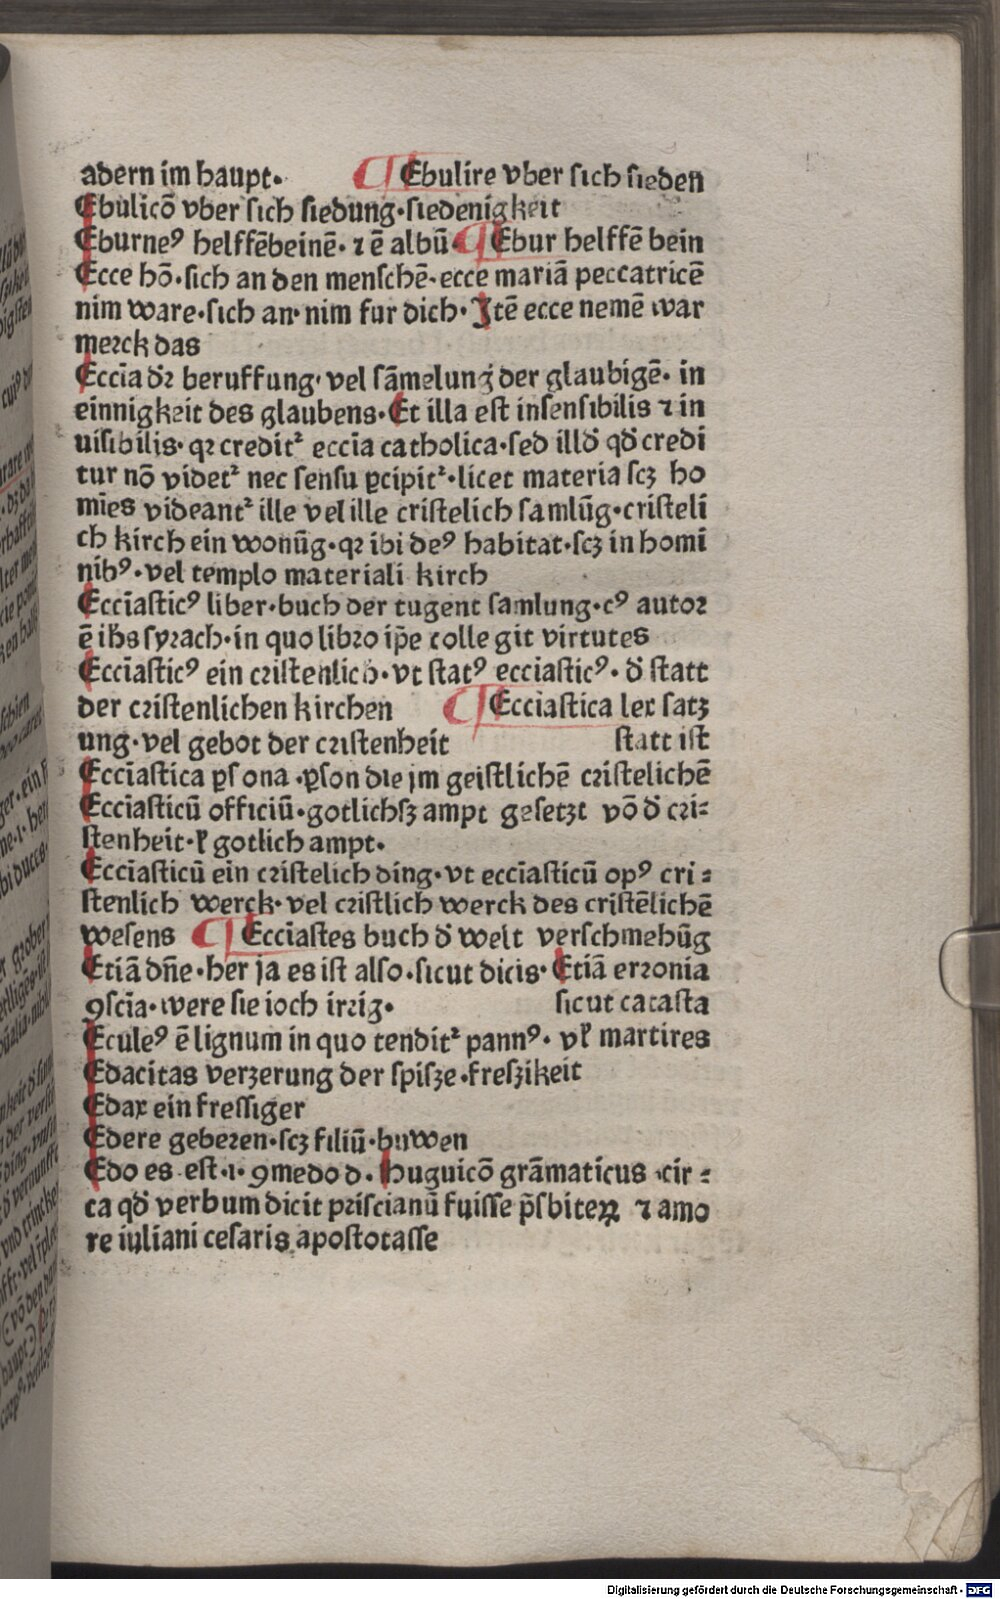 adern im haupt· ¶ Ebulire vber sich sieden
Ebulicõ vber sich siedung·siedenigkeit
Eburneꝰ helffẽbeinẽ·⁊ ẽ albũ· ¶ Ebur helffẽ bein
Ecce hõ·sich an den menschẽ·ecce mariã peccatricẽ
nim ware·sich an·nim fur dich·Jtẽ ecce nemẽ war
merck das
Eccĩa dꝛ beruffung·vel sãmelung der glaubigẽ·in
einnigkeit des glaubens·Et illa est insensibilis ⁊ in
uisibilis·qꝛ creditᷣ eccĩa catholica·sed illđ qđ credi
tur nõ videtᷣ nec sensu ꝑcipitᷣ·licet materia scꝫ ho
mĩes videantᷣ ille vel ille cristelich samlũg·cristeli
ch kirch ein wonũg·qꝛ ibi deꝰ habitat·scꝫ in homi
nibꝰ·vel templo materiali kirch
Eccĩasticꝰ liber·buch der tugent samlung·cꝰ autoꝛ
ẽ ihs syrach·in quo libꝛo ip̃e colle git virtutes
Eccĩasticꝰ ein cꝛistenlich·vt statꝰ ecciasticꝰ·đ statt
der cꝛistenlichen kirchen ¶ Ecciastica lex satz
ung·vel gebot der cꝛistenheit statt ist
Eccĩastica ꝑsona·ꝑson die jm geistlichẽ cꝛistelichẽ
Eccĩasticũ officiũ·gotlichsz ampt gesetzt võ đ cꝛi⸗
stenheit·ꝉ gotlich ampt·
Eccĩasticũ ein cꝛistelich ding·vt eccĩasticũ opꝰ cri⸗
stenlich werck·vel cꝛistlich werck des cristẽlichẽ
wesens ¶ Ecciastes buch đ welt verschmehũg
Etiã dñe·her ja es ist also·sicut dicis·Etiã erꝛonia
ꝯscĩa·were sie ioch irꝛig· sicut catasta
Eculeꝰ ẽ lignum in quo tenditᷣ pannꝰ·vꝉ martires
Edacitas verzerung der spisze·freszikeit
Edax ein fressiger
Edere gebeꝛen·scꝫ filiũ·buwen
Edo es est·i·ꝯmedo d·Huguicõ grãmaticus cir⸗
ca qđ verbum dicit pꝛiscianũ fuisse p̃sbiteꝝ ⁊ amo
re iuliani cesaris apostotasse
Digitalisierung gefördert durch die Deutsche Forschungsgemeinschaft - DFG